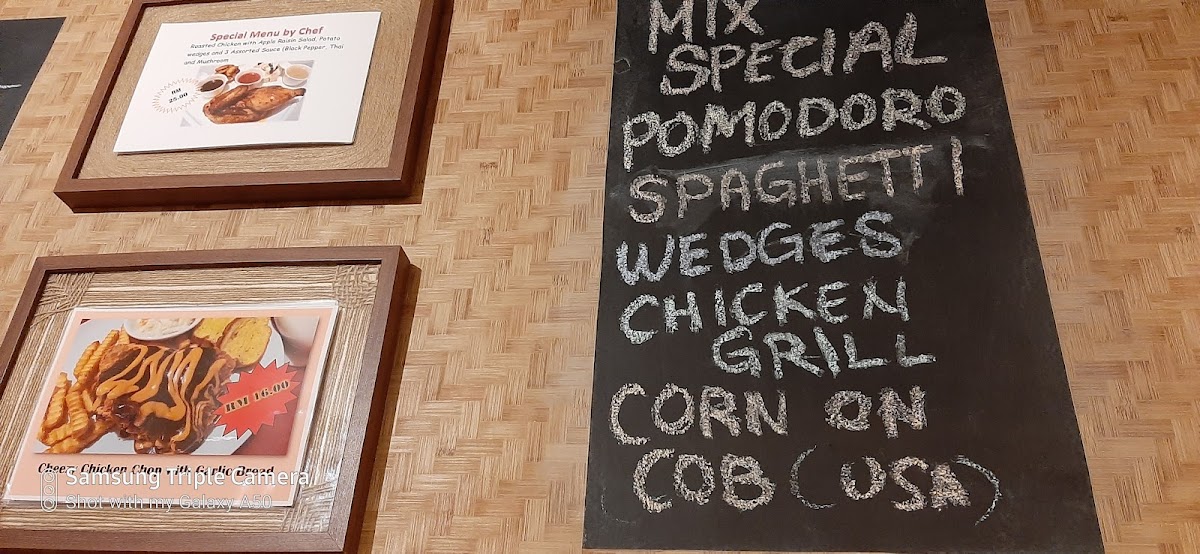 Special Menu by Chef
Roasted Chicken with Apple Raisin Salad, Potato
wedges and 3 Assorted Sauce (Black Pepper, Thai
and Mushroom
RM
25.00
RM 16.00
Cheezy Chicken Chop with Garlic Bread
Samsung Triple Camera
Shot with my Galaxy A50
MIX
SPECIAL
POMODORO
SPAGHETTI
WEDGES
CHICKEN
GRILL
CORN ON
COB (USA)